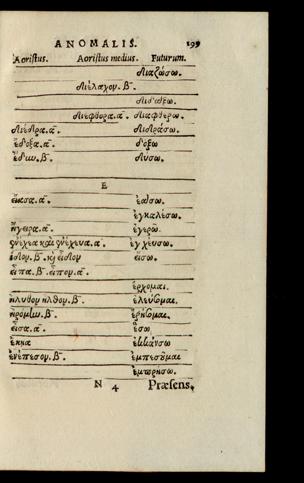 ANOMALIS. 199
Aoristus. Aoristus medius. Futurum.
διαζώσω.
διέλαχον. β̄.
διδάξω.
διέφθορα. α. διαφθερω.
διέδρα. α. διαδράσω.
ἔδοξα. α. δόξω
ἔδιω. β̄. δύσω.
E
εἴασα. α. ἐάσω.
ἐγκαλέσω.
ἤγειρα. α. ἐγερῶ
ἐγχεύσω.
εἴσω.
εἶπα. β̄. εἶπον. α.
ἔρχομαι.
ἤλυθον ἦλθον. β̄. ἐλεύσομαι.
ἠρόμιω. β̄. ἐρήσομαι.
εἷσα. α. ἕσω
ἔκηα ἐκκαύσω
ἐνέπεσον. β̄. ἐμπεσοῦμαι
ἐμπρήσω.
N 4 Præsens.